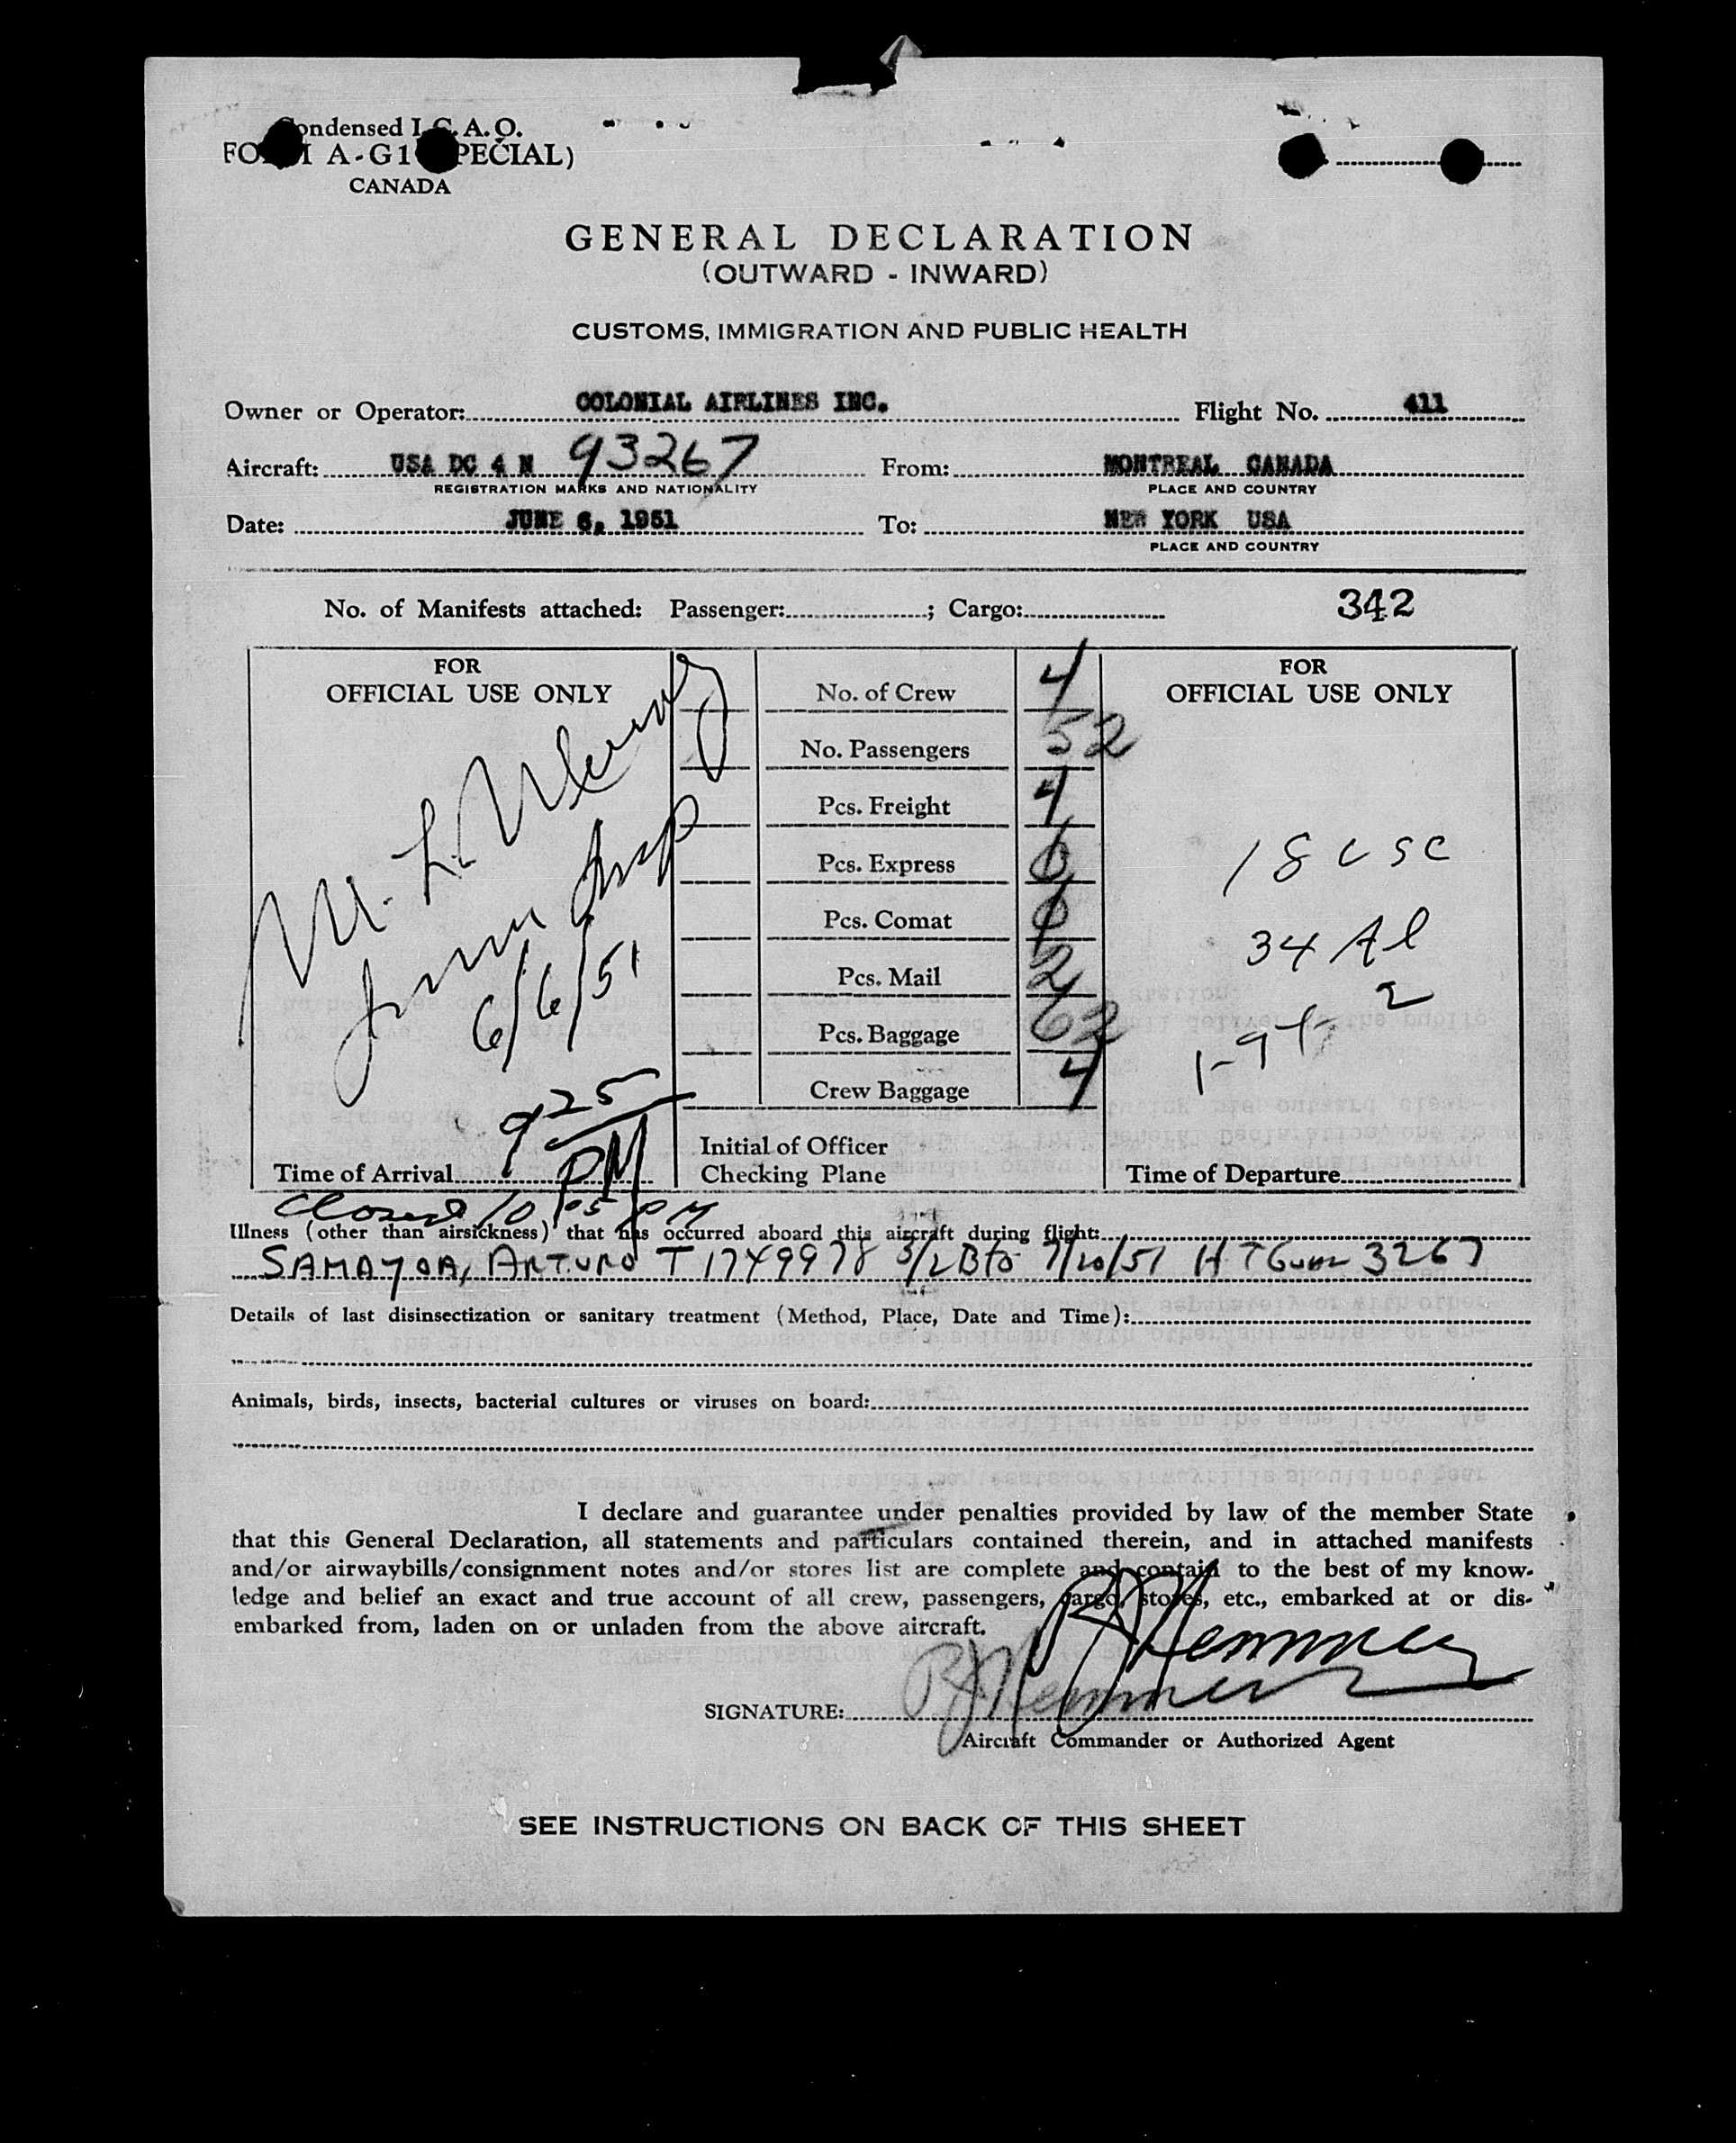 Condensed I.C.A.O.
FORM A-G1 (SPECIAL)
CANADA
GENERAL DECLARATION
(OUTWARD - INWARD)
CUSTOMS, IMMIGRATION AND PUBLIC HEALTH
Owner or Operator: COLONIAL AIRLINES INC. Flight No. 411
Aircraft: USA DC 4 N 93267 From: MONTREAL CANADA
REGISTRATION MARKS AND NATIONALITY PLACE AND COUNTRY
Date: JUNE 6, 1951 To: NEW YORK USA
PLACE AND COUNTRY
No. of Manifests attached: Passenger: ; Cargo: 342
FOR
OFFICIAL USE ONLY
M. L.
Imm Insp
6/6/51
9 25
PM
Time of Arrival
No. of Crew 4
No. Passengers 52
Pcs. Freight 4
Pcs. Express 0
Pcs. Comat 0
Pcs. Mail 2
Pcs. Baggage 62
Crew Baggage 4
Initial of Officer
Checking Plane
FOR
OFFICIAL USE ONLY
18 USC
34 Al
2
Time of Departure
Closed 10 05 PM
Illness (other than airsickness) that has occurred aboard this aircraft during flight:
SAMAYOA, ARTURO T 1749978 3/2 B to 7/20/51 H T Guar 3267
Details of last disinsectization or sanitary treatment (Method, Place, Date and Time):
Animals, birds, insects, bacterial cultures or viruses on board:
I declare and guarantee under penalties provided by law of the member State
that this General Declaration, all statements and particulars contained therein, and in attached manifests
and/or airwaybills/consignment notes and/or stores list are complete and contain to the best of my know-
ledge and belief an exact and true account of all crew, passengers, cargo, stores, etc., embarked at or dis-
embarked from, laden on or unladen from the above aircraft.
SIGNATURE:
Aircraft Commander or Authorized Agent
SEE INSTRUCTIONS ON BACK OF THIS SHEET